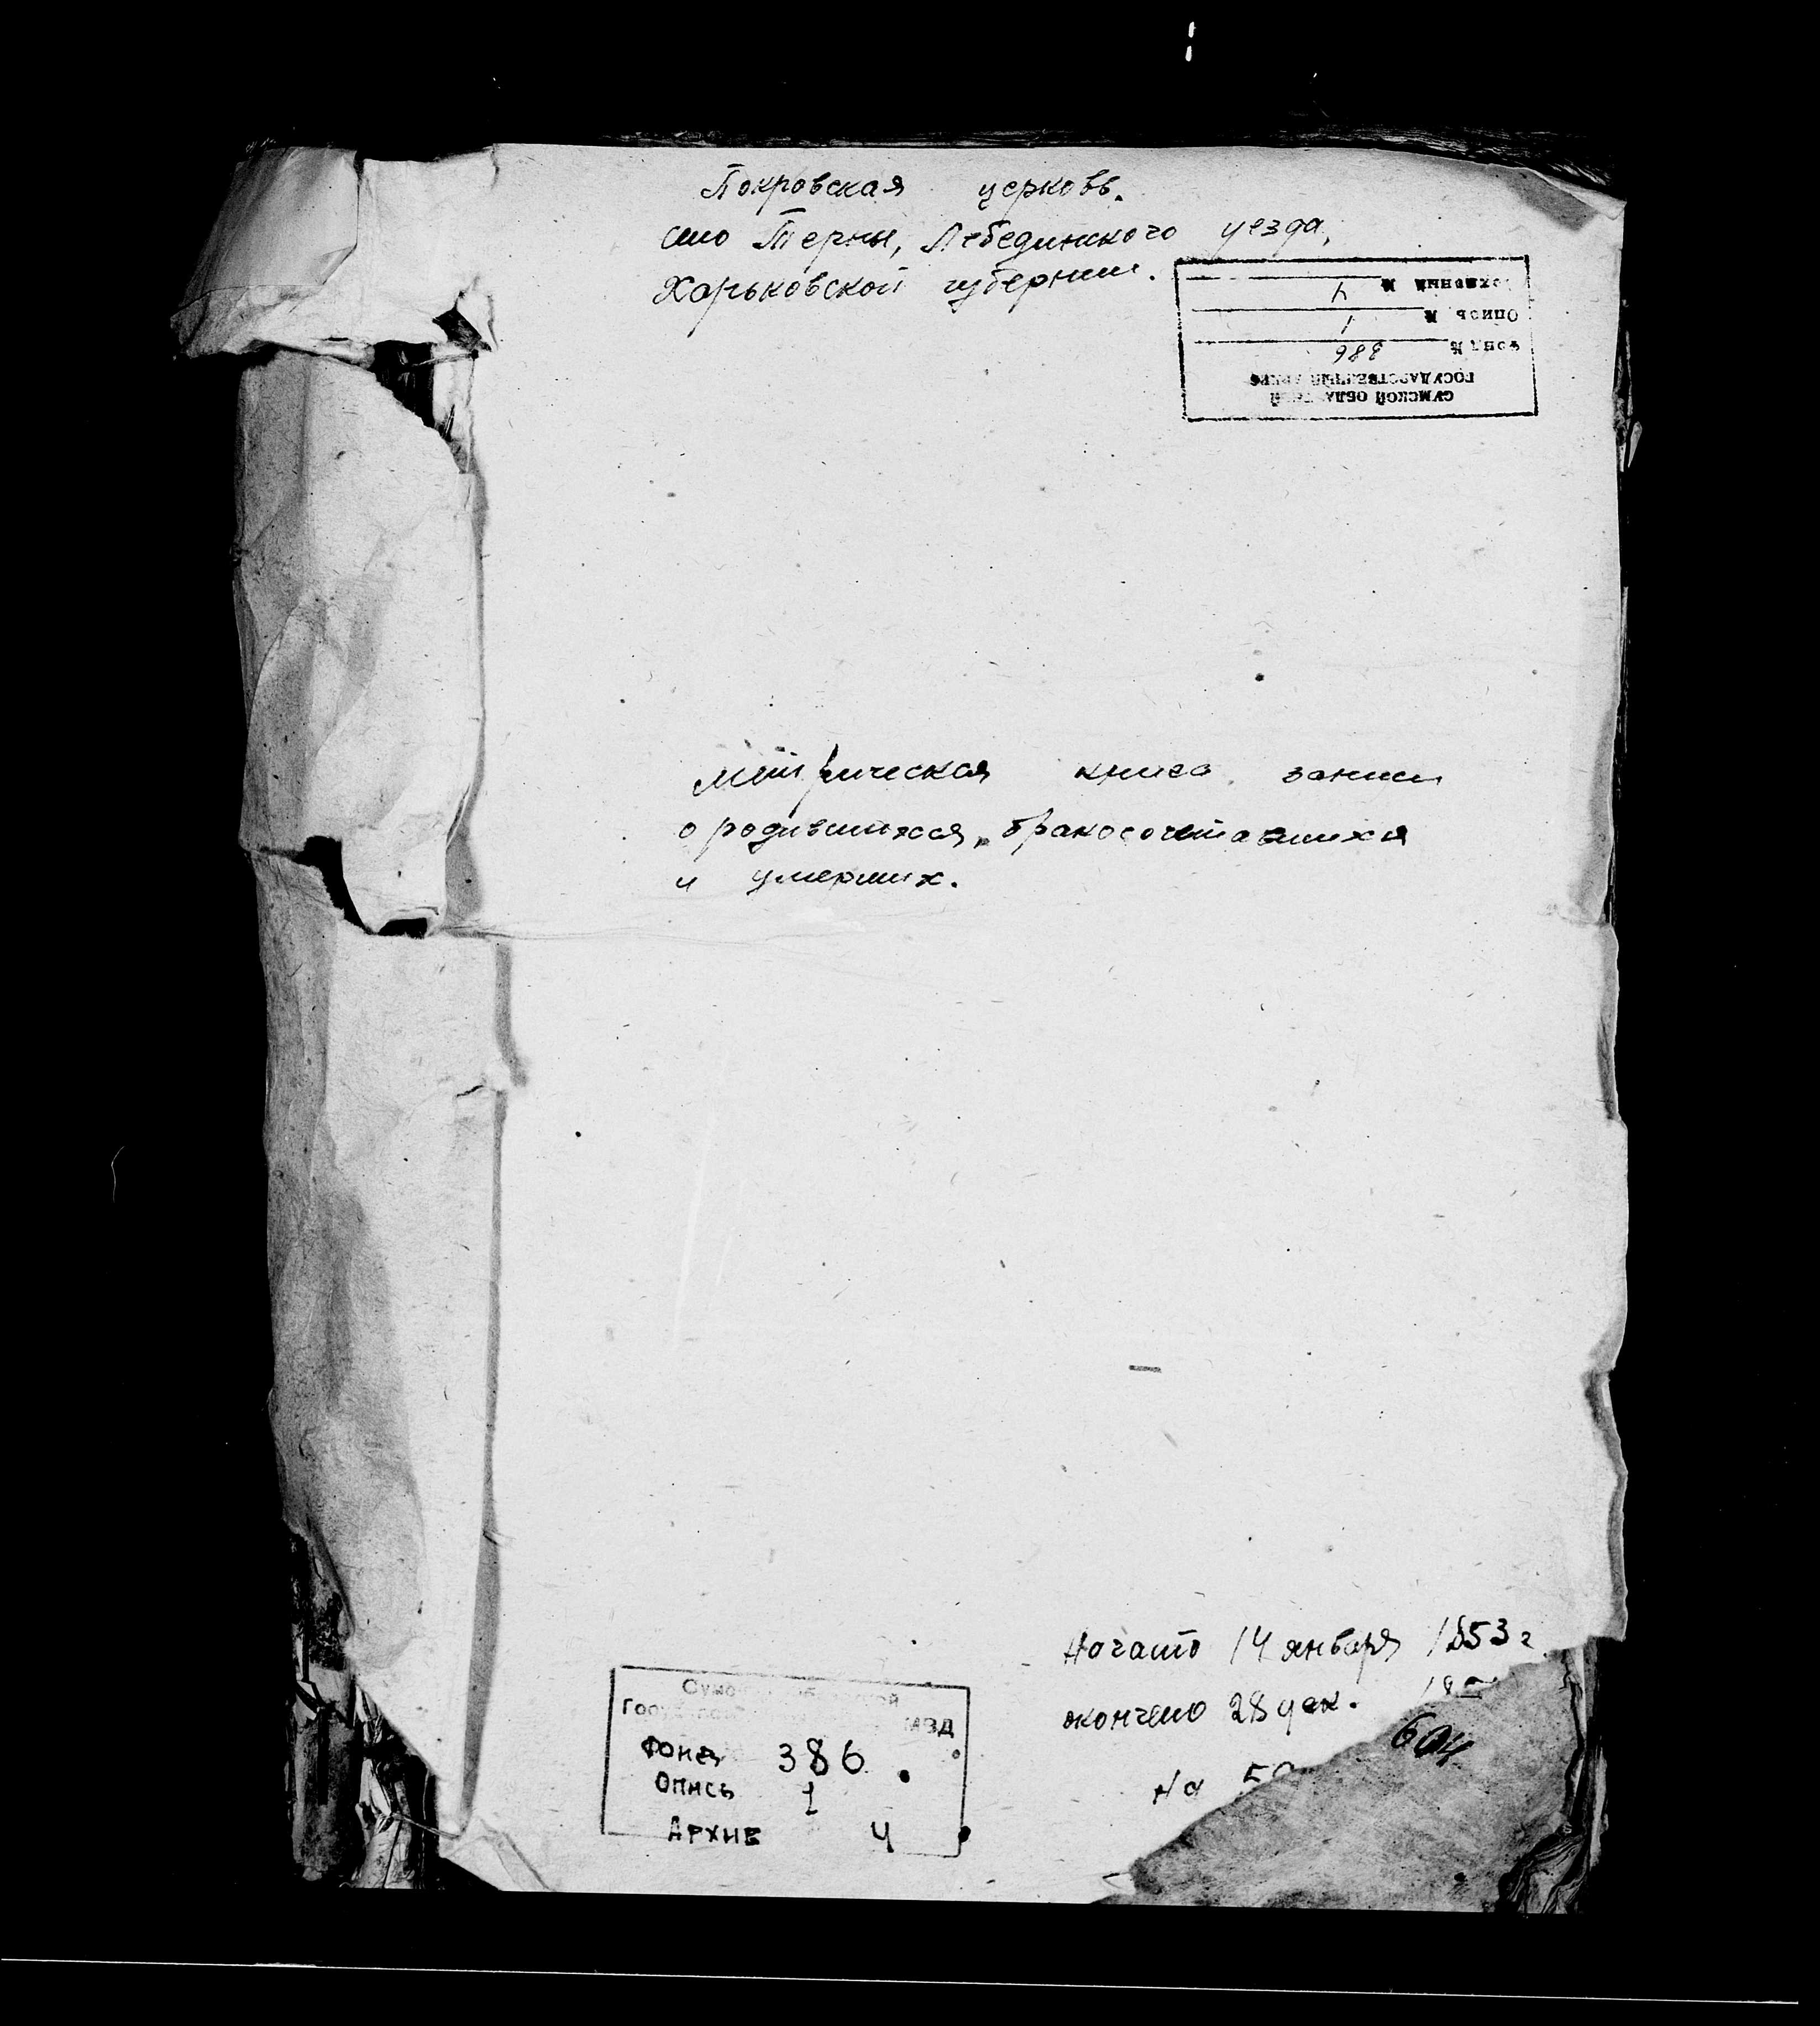 Покровская церковь.
село Терны, Лебединского уезда,
Харьковской губернии.
СУМСКОЙ ОБЛАСТНОЙ
ГОСУДАРСТВЕННЫЙ АРХИВ
ФОНД № 386
ОПИСЬ № 1
АРХИВНЫЙ № 4
Метрическая книга записи
о родившихся, бракосочетавшихся
и умерших.
Начато 14 января 1853 г.
окончено 28 дек.
604
На
МВД
Фонд 386
Опись 1
Архив 4